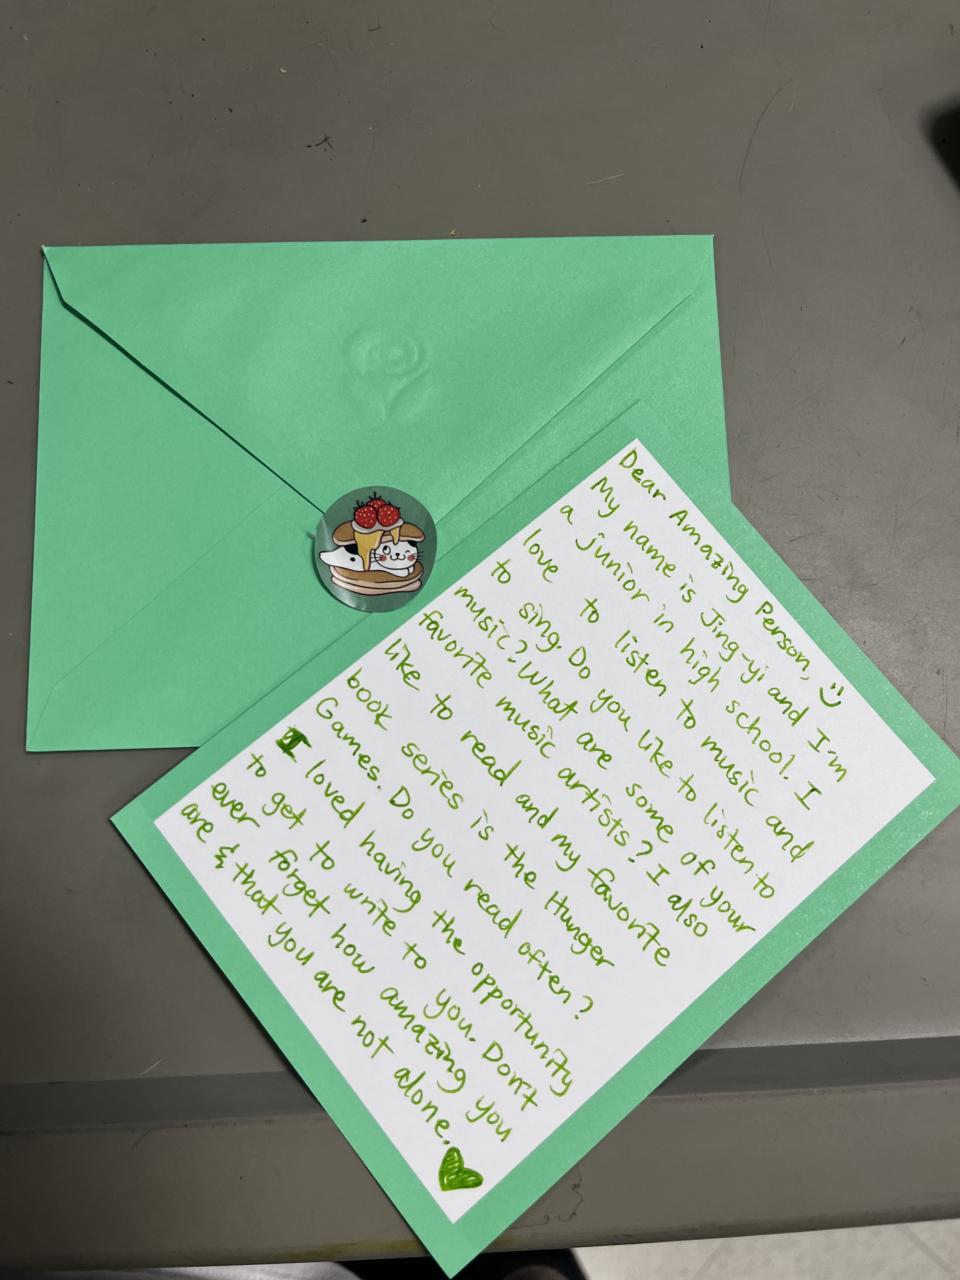 Dear Amazing Person, :)
My name is Jing-yi and I'm
a junior in high school. I
love to listen to music and
to sing. Do you like to listen to
music? What are some of your
favorite music artists? I also
like to read and my favorite
book series is the Hunger
Games. Do you read often?
I loved having the opportunity
to get to write to you. Don't
ever forget how amazing you
are & that you are not alone. ♥